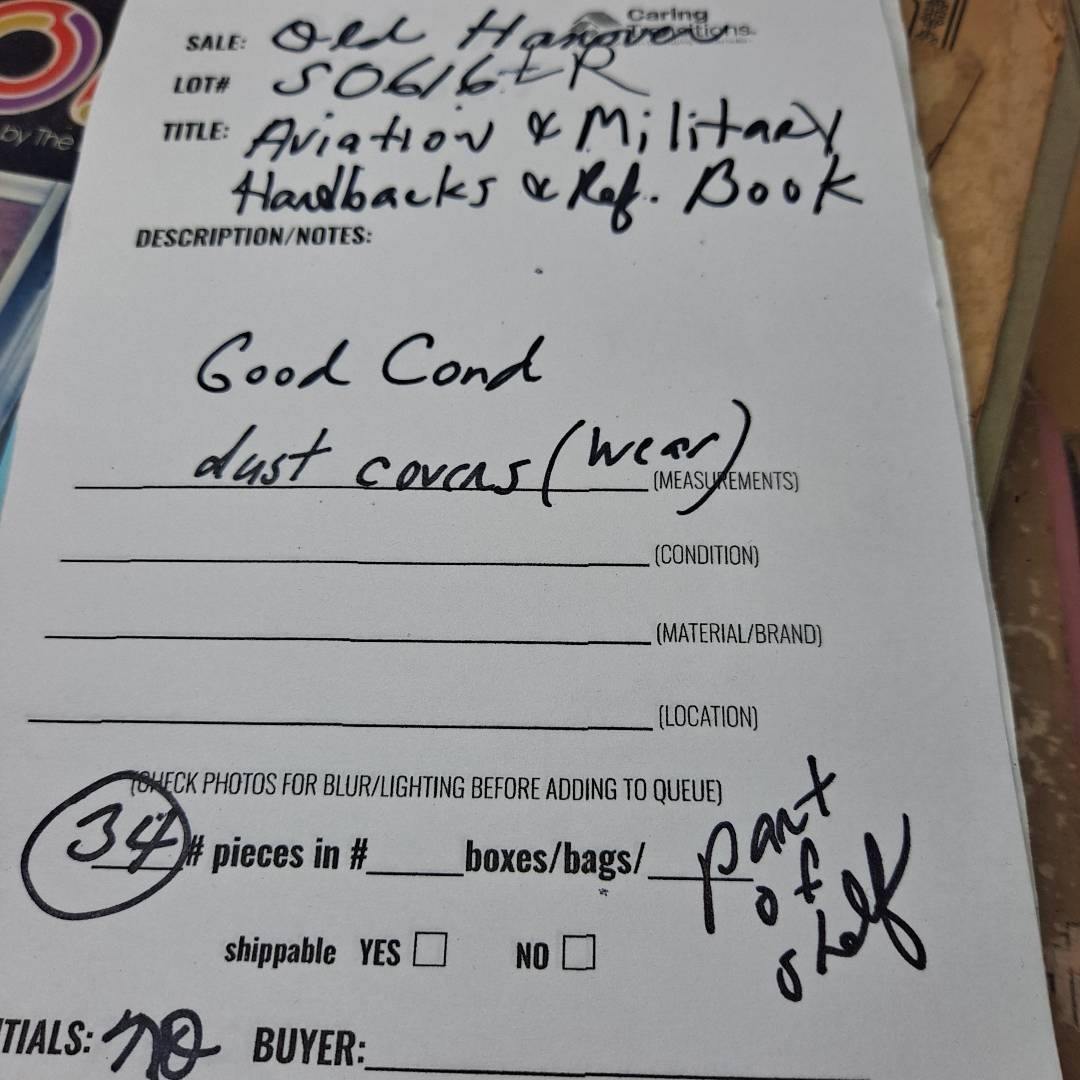 Caring
Transitions.
SALE: Old Hanover
LOT# S0616ER
TITLE: Aviation & Military
Hardbacks & Ref. Book
DESCRIPTION/NOTES:
Good Cond
dust covers (wear)
(MEASUREMENTS)
(CONDITION)
(MATERIAL/BRAND)
(LOCATION)
(CHECK PHOTOS FOR BLUR/LIGHTING BEFORE ADDING TO QUEUE)
34 # pieces in # boxes/bags/ part
of
shelf
shippable YES NO
TIALS: BUYER:
by The